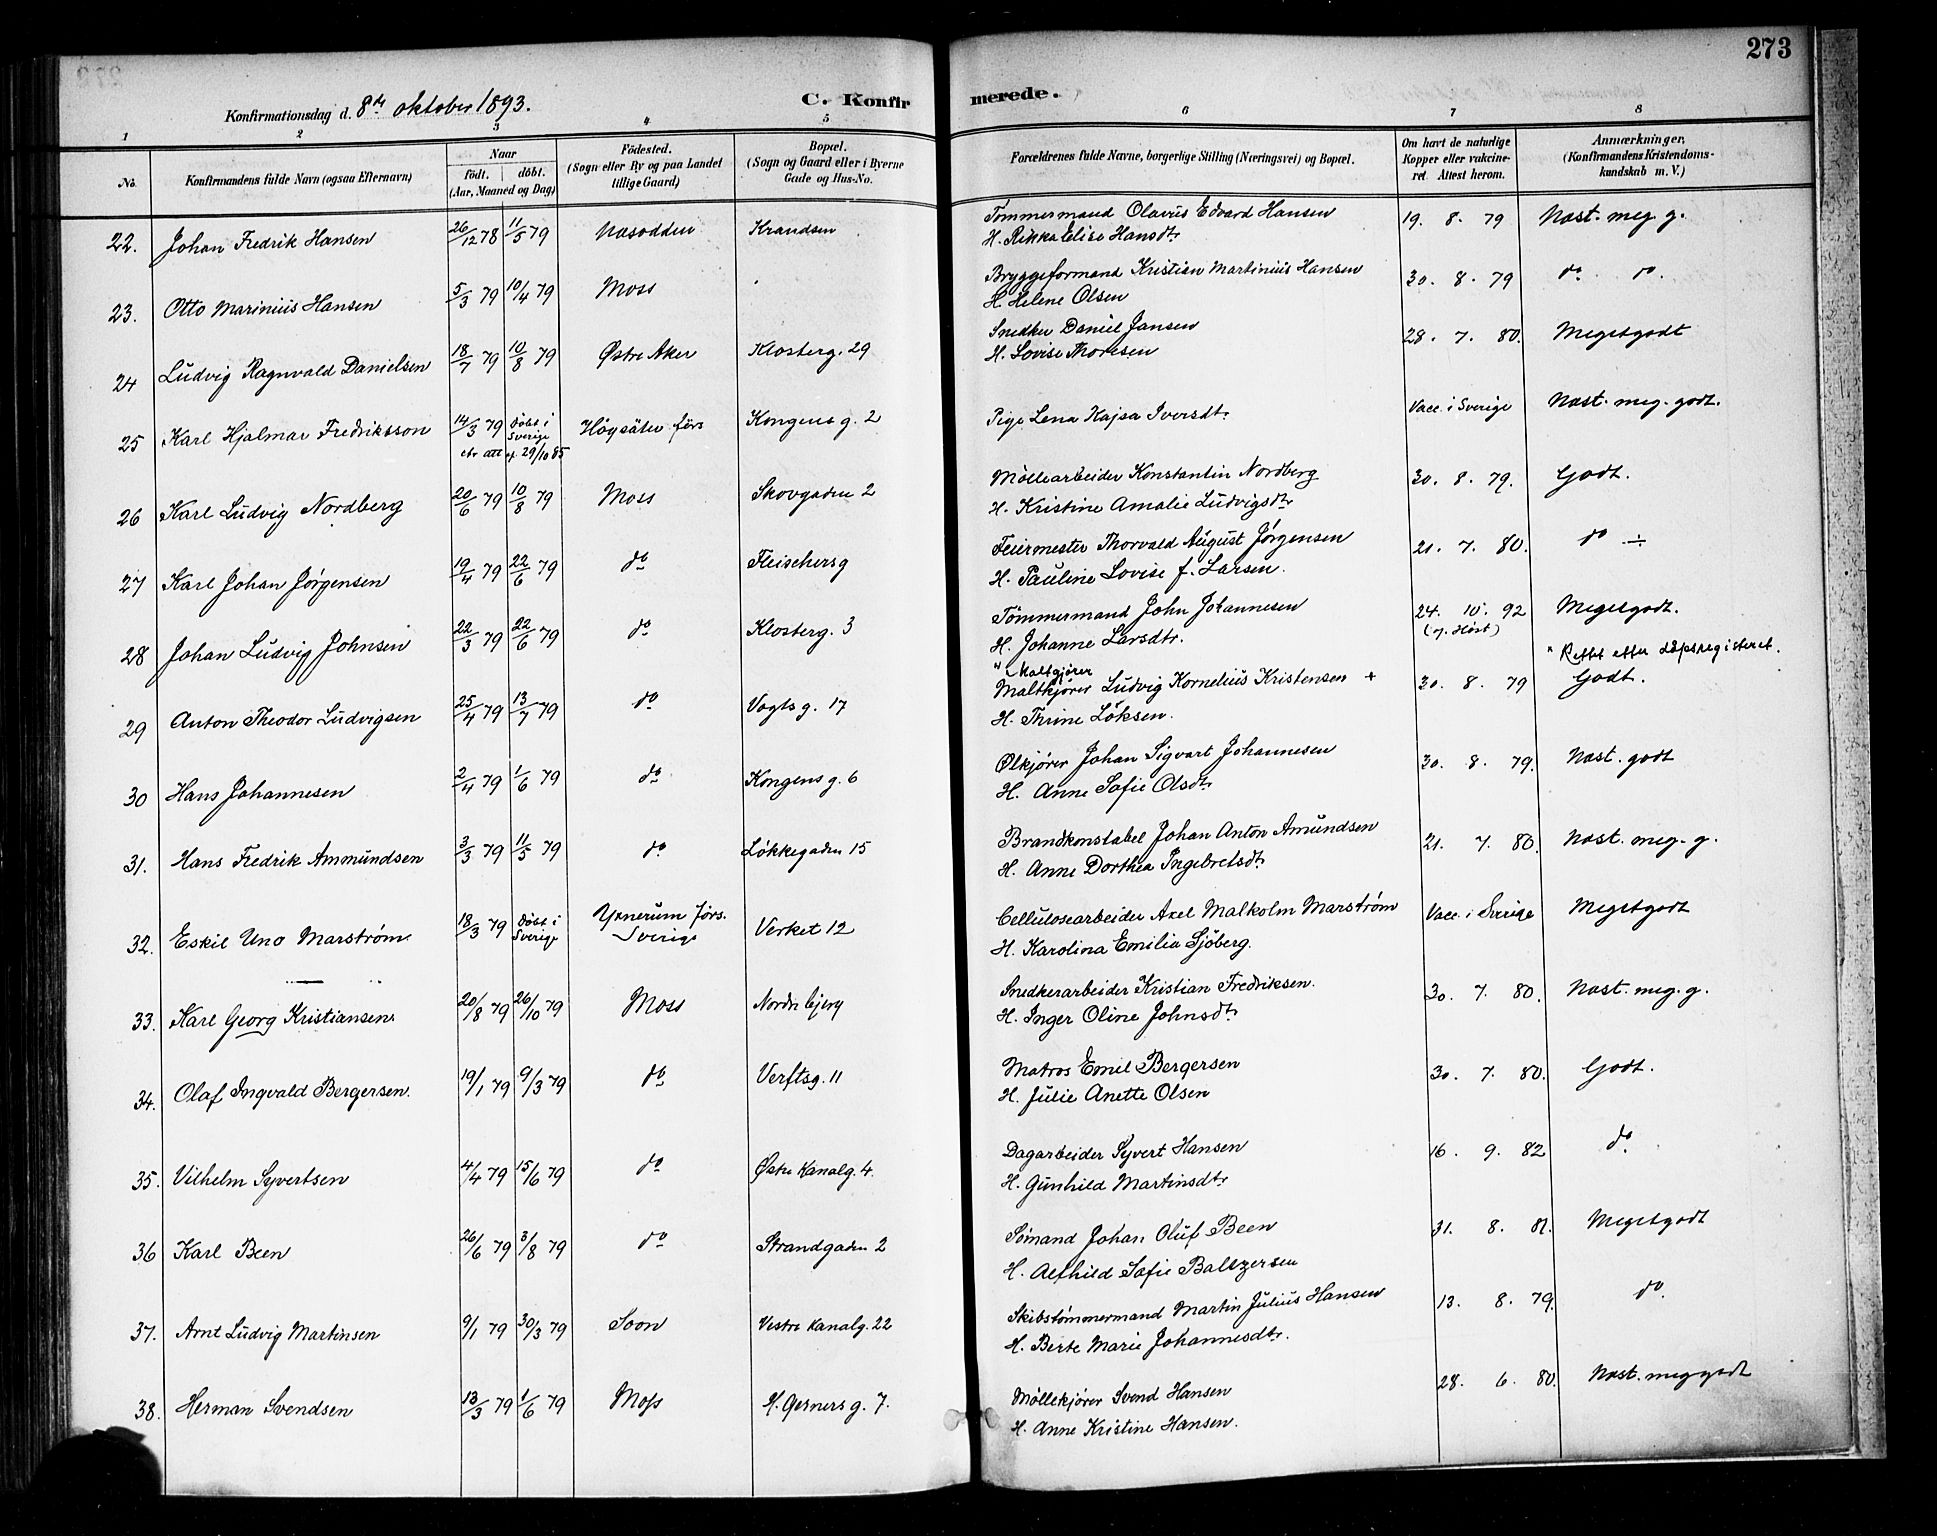 273
Konfirmationsdag d. 8de oktober 1893.
C. Konfirmerede.
1 2 3 4 5 6 7 8
No. Konfirmandens fulde Navn (ogsaa Efternavn) Naar født. døbt. (Aar, Maaned og Dag) Födested. (Sogn eller By og paa Landet tillige Gaard) Bopæl. (Sogn og Gaard eller i Byerne Gade og Hus-No. Forældrenes fulde Navne, borgerlige Stilling (Næringsvei) og Bopæl. Om havt de naturlige Kopper eller vakcineret. Attest herom. Anmærkninger, (Konfirmandens Kristendomskundskab m. V.)
22. Johan Fredrik Hansen 26/12 78 11/5 79 Næsodden Krandsen Tømmermand Olavus Edvard Hansen 19. 8. 79 Næst. meg. g.
H. Rikka Elise Hansdtr
23. Otto Marinius Hansen 5/3 79 10/4 79 Moss Bryggeformand Kristian Martinius Hansen 30. 8. 79 do do.
H. Helene Olsen
24 Ludvig Ragnvald Danielsen 18/7 79 10/8 79 Østre Aker Klosterg. 29 Snedker Daniel Jansen 28. 7. 80. Megetgodt
H. Lovise Thoresen
25 Karl Hjalmar Fredriksson 14/3 79 Døbt i Sverige Högsäter förs Kongens g. 2 Pige Lena Kajsa Iversdtr Vacc. i Sverige Næst. meg. godt.
etr att af. 29/10 85
26 Karl Ludvig Nordberg 20/6 79 10/8 79 Moss Skovgaden 2 Møllearbeider Konstantin Nordberg 30. 8. 79. Godt.
H. Kristine Amalie Ludvigsdtr
27 Karl Johan Jørgensen 19/4 79 22/6 79 do Fleischersg Feiermester Thorvald August Jørgensen 21. 7. 80. do ÷
H. Pauline Lovise f. Larsen.
28 Johan Ludvig Johnsen 22/3 79 22/6 79 do Klosterg. 3 Tømmermand John Johannesen 24. 10. 92 Megetgodt.
H. Johanne Larsdtr. (v. Høst)
" Maltgjører " Rettet etter dåpsregisteret.
29 Anton Theodor Ludvigsen 25/4 79 13/7 79 do Vogts g. 17 Maltkjører Ludvig Kornelius Kristensen + 30. 8. 79 Godt.
H. Thrine Løksen.
30 Hans Johannesen 2/4 79 1/6 79 do Kongens g. 6 Ølkjører Johan Sigvart Johannesen 30. 8. 79. Næst. godt
H. Anne Sofie Olsdtr
31. Hans Fredrik Ammundsen 3/3 79 11/5 79 do Løkkegaden 15 Brandkonstabel Johan Anton Amundsen 21. 7. 80. Næst. meg. g.
H. Anne Dorthea Ingebretsdtr
32. Eskil Uno Marstrøm 18/3 79 Døbt i Sverige Yxnerum förs. Sverige Verket 12 Cellulosearbeider Axel Malkolm Marstrøm Vacc. i Sverige Megetgodt
H. Karolina Emilia Sjöberg.
33. Karl Georg Kristiansen 20/8 79 26/10 79 Moss Nordre bjerg Snedkerarbeider Kristian Fredriksen. 30. 7. 80. Næst. meg. g.
H. Inger Oline Johnsdtr
34. Olaf Ingvald Bergersen. 19/1 79 9/3 79 do Verftsg. 11 Matros Emil Bergersen 30. 7. 80. Godt.
H. Julie Anette Olsen
35. Vilhelm Syvertsen 4/4 79 15/6 79 do Østre Kanalg. 4. Dagarbeider Syvert Hansen 16. 9. 82 do.
H. Gunhild Martinsdtr
36 Karl Been 26/6 79 3/8 79 do Strandgaden 2 Sømand Johan Oluf Been 31. 8. 81. Megetgodt
H. Alfhild Sofie Baltzersen
37. Arnt Ludvig Martinsen 9/1 79 30/3 79 Soon Vestre Kanalg. 22 Skibstømmermand Martin Julius Hansen 13. 8. 79. do.
H. Berte Marie Johannesdtr.
38. Herman Svendsen 13/3 79 1/6 79 Moss H. Gerners g. 7. Møllekjører Svend Hansen 28. 6. 80. Næst. meg godt
H. Anne Kristine Hansen.